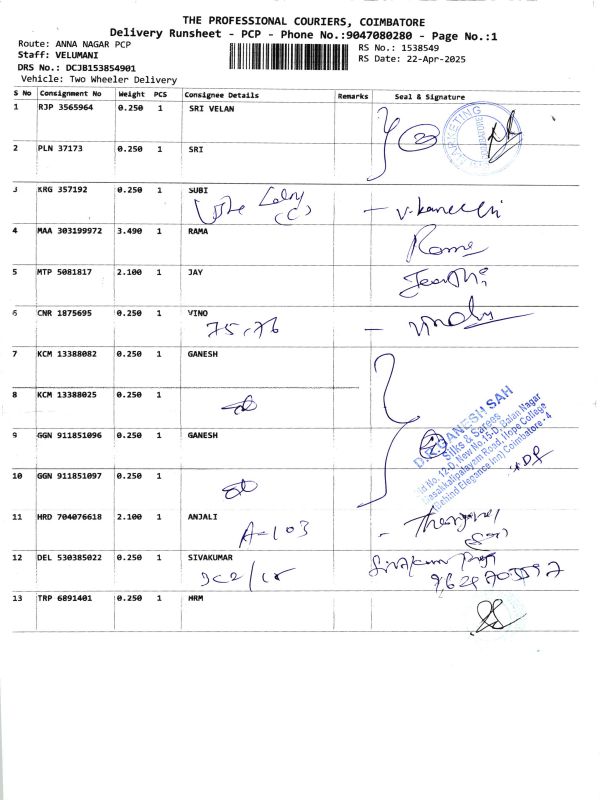 THE PROFESSIONAL COURIERS, COIMBATORE
Delivery Runsheet - PCP - Phone No.:9047080280 - Page No.:1
Route: ANNA NAGAR PCP
Staff: VELUMANI
DRS No.: DCJB153854901
Vehicle: Two Wheeler Delivery
RS No.: 1538549
RS Date: 22-Apr-2025
S No Consignment No Weight PCS Consignee Details Remarks Seal & Signature
1 RJP 3565964 0.250 1 SRI VELAN
MARKETING
2 PLN 37173 0.250 1 SRI
3 KRG 357192 0.250 1 SUBI
4 MAA 303199972 3.490 1 RAMA
5 MTP 5081817 2.100 1 JAY
6 CNR 1875695 0.250 1 VINO
75,76
7 KCM 13388082 0.250 1 GANESH
8 KCM 13388025 0.250 1
9 GGN 911851096 0.250 1 GANESH
D. GANESH SAH
Silks & Sarees
Old No. 12-D, New No.15-D, Balan Nagar
Masakkalipalayam Road, Hope College
(Behind Elegance Inn) Coimbatore - 4
10 GGN 911851097 0.250 1
11 HRD 704076618 2.100 1 ANJALI
A-103
12 DEL 530385022 0.250 1 SIVAKUMAR
13 TRP 6891401 0.250 1 MRM